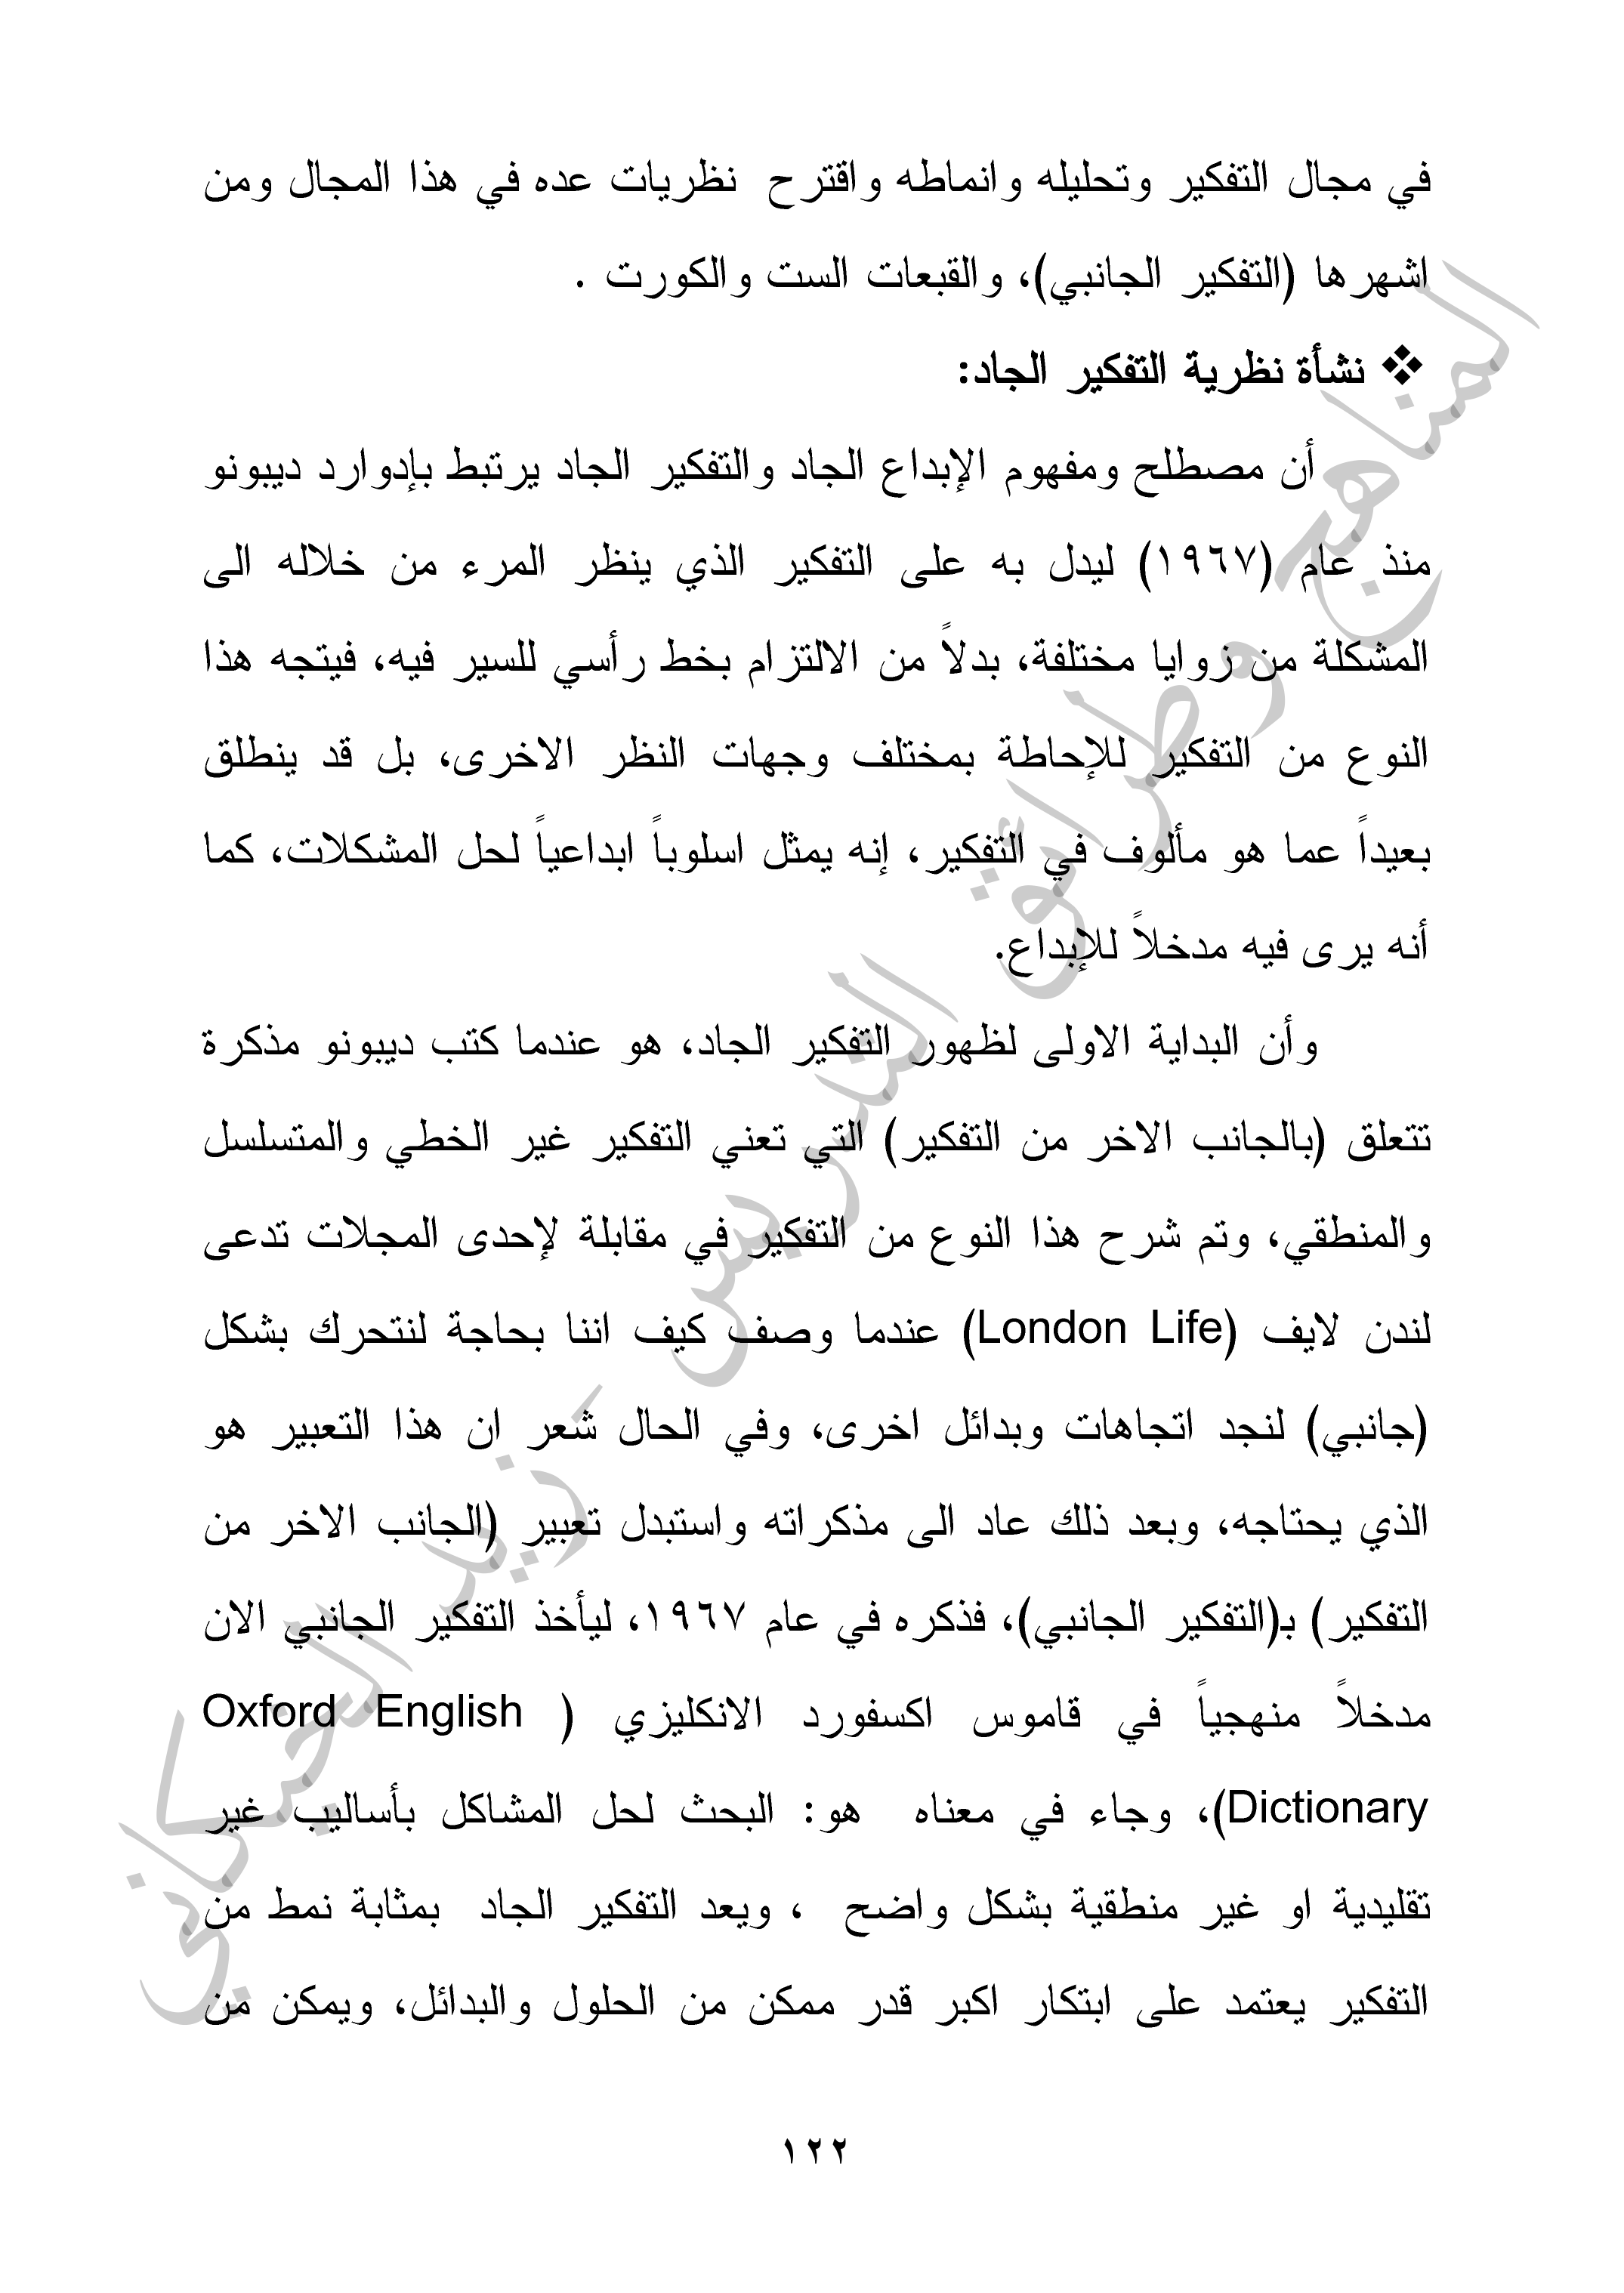 في مجال التفكير وتحليله وانماطه واقترح نظريات عده في هذا المجال ومن
اشهرها (التفكير الجانبي)، والقبعات الست والكورت .
❖ نشأة نظرية التفكير الجاد:
أن مصطلح ومفهوم الإبداع الجاد والتفكير الجاد يرتبط بإدوارد ديبونو
منذ عام (١٩٦٧) ليدل به على التفكير الذي ينظر المرء من خلاله الى
المشكلة من زوايا مختلفة، بدلاً من الالتزام بخط رأسي للسير فيه، فيتجه هذا
النوع من التفكير للإحاطة بمختلف وجهات النظر الاخرى، بل قد ينطلق
بعيداً عما هو مألوف في التفكير، إنه يمثل اسلوباً ابداعياً لحل المشكلات، كما
أنه يرى فيه مدخلاً للإبداع.
وأن البداية الاولى لظهور التفكير الجاد، هو عندما كتب ديبونو مذكرة
تتعلق (بالجانب الاخر من التفكير) التي تعني التفكير غير الخطي والمتسلسل
والمنطقي، وتم شرح هذا النوع من التفكير في مقابلة لإحدى المجلات تدعى
لندن لايف (London Life) عندما وصف كيف اننا بحاجة لنتحرك بشكل
(جانبي) لنجد اتجاهات وبدائل اخرى، وفي الحال شعر ان هذا التعبير هو
الذي يحتاجه، وبعد ذلك عاد الى مذكراته واستبدل تعبير (الجانب الاخر من
التفكير) بـ(التفكير الجانبي)، فذكره في عام ١٩٦٧، ليأخذ التفكير الجانبي الان
مدخلاً منهجياً في قاموس اكسفورد الانكليزي (Oxford English
Dictionary)، وجاء في معناه هو: البحث لحل المشاكل بأساليب غير
تقليدية او غير منطقية بشكل واضح ، ويعد التفكير الجاد بمثابة نمط من
التفكير يعتمد على ابتكار اكبر قدر ممكن من الحلول والبدائل، ويمكن من
١٢٢
المناهج وطرائق التدريس - زيد الخيكاني